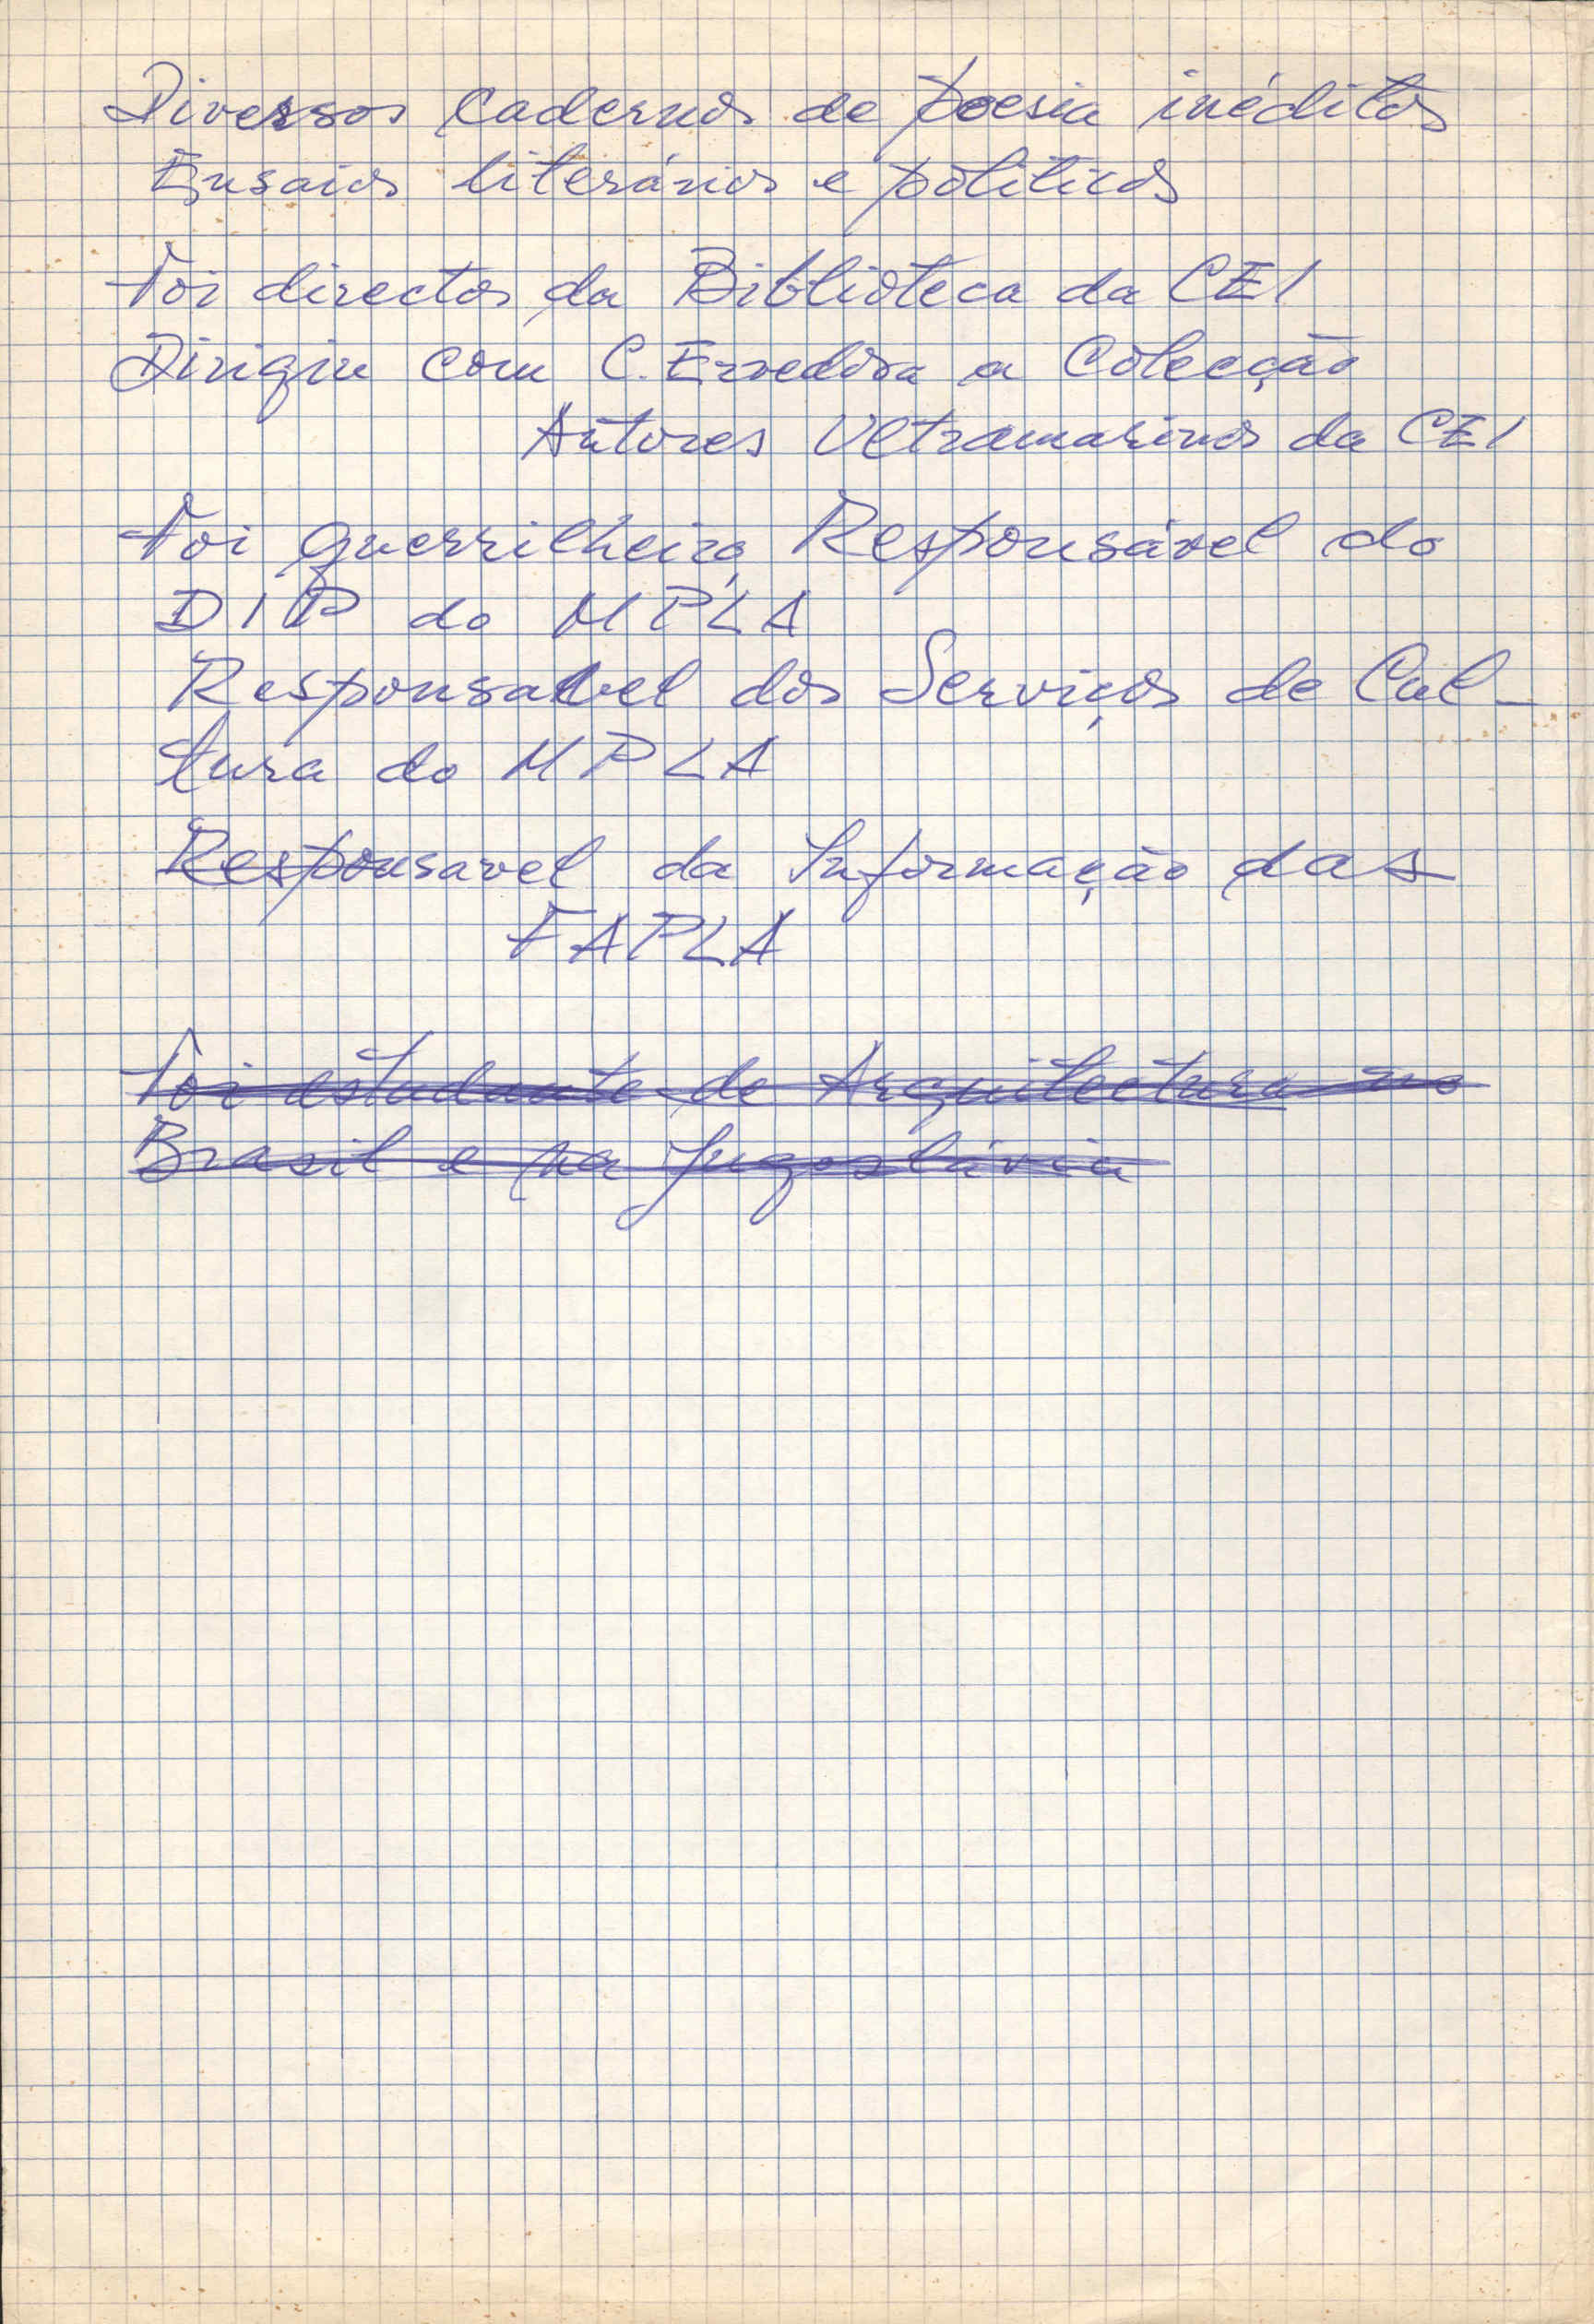 Diversos Cadernos de poesia inéditos
Ensaios literários e políticos
Foi director da Biblioteca da CEI
Dirigiu com C. Ervedosa a Colecção
Autores Ultramarinos da CEI
Foi guerrilheiro, Responsável do
DIP do MPLA
Responsavel dos Serviços de Cul-
tura do MPLA
Responsavel da Informação das
FAPLA
Foi estudante de Arquitectura no
Brasil e na Jugoslávia